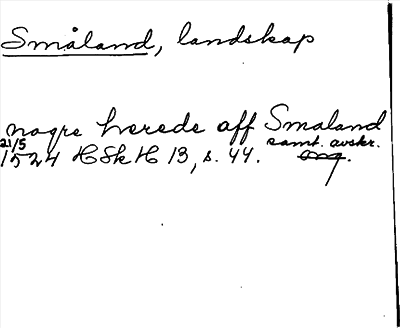 Småland, landskap
nogre herede aff Smaland
21/5 samt. avskr.
1524 HSkH 13, s. 44. orig.